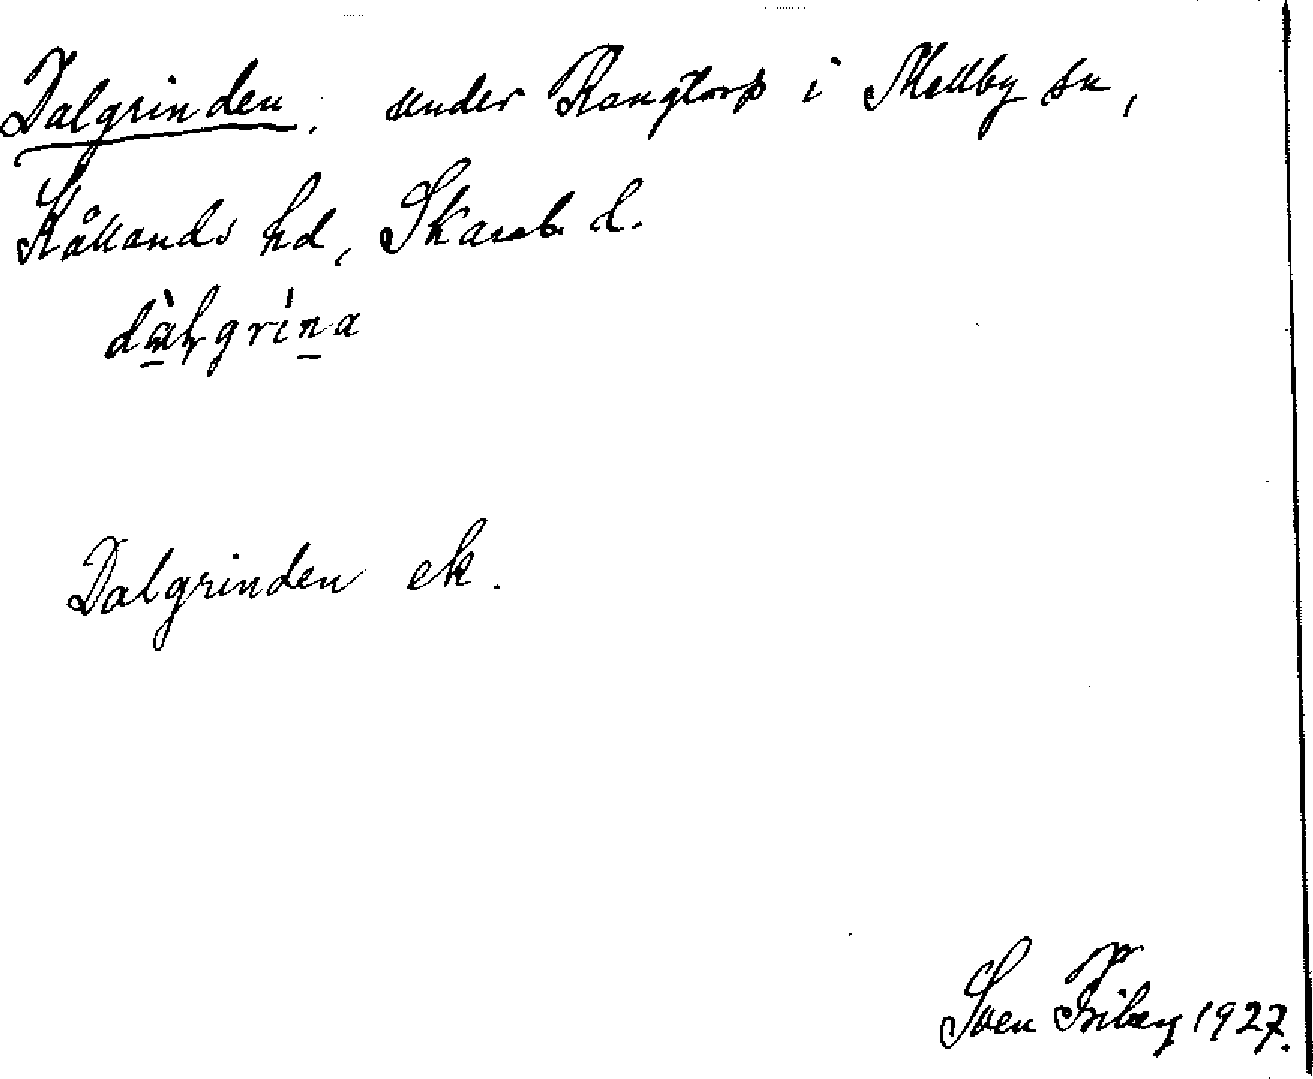 Dalgrinden. under Rangtorp i Mellby sn,
Kållands hd, Skarab. l.
dàlgrina
Dalgrinden ek.
Sven Friberg 1927.